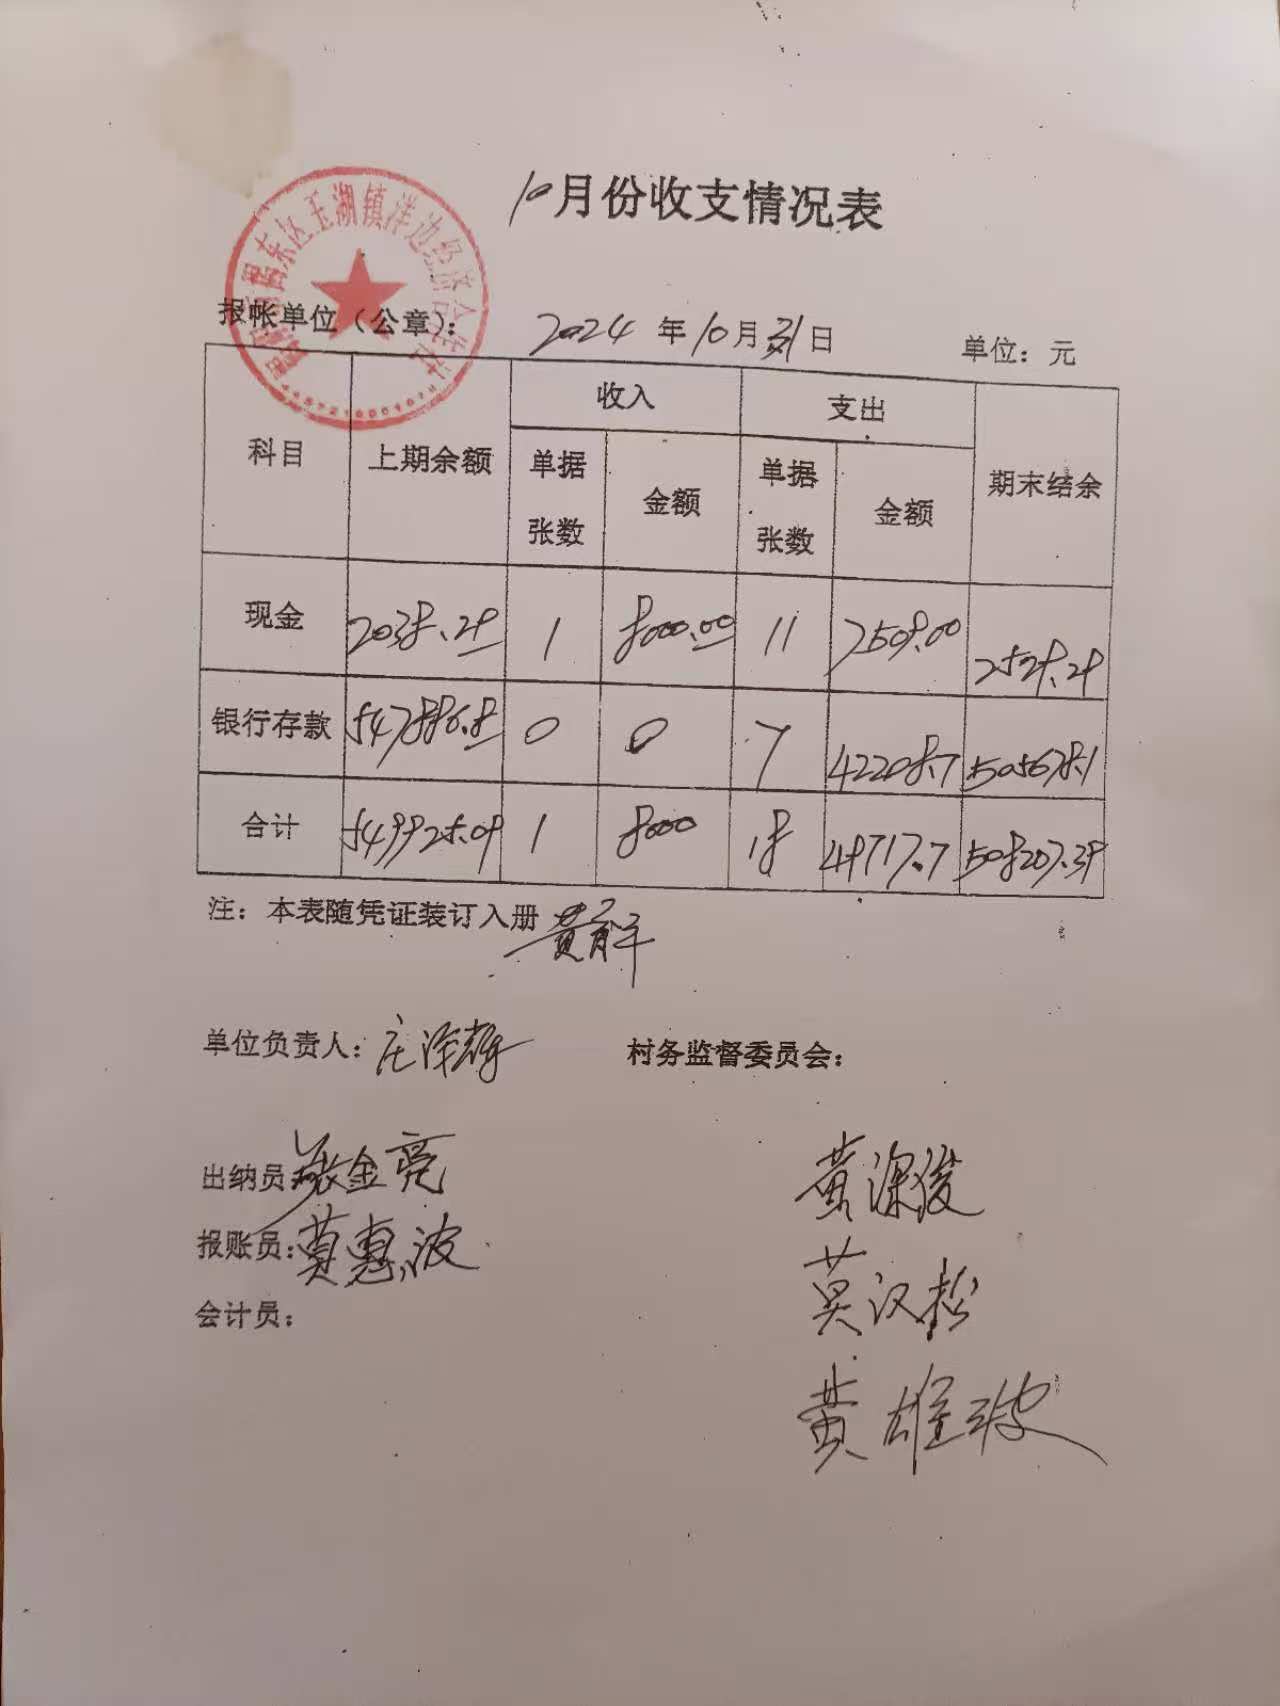 10月份收支情况表
揭阳市揭东区玉湖镇洋边经济合作社
报帐单位（公章）： 2024年10月31日 单位：元
科目 上期余额 收入 支出 期末结余
单据张数 金额 单据张数 金额
现金 2038.29 1 8000.00 11 7509.00 2529.29
银行存款 547886.8 0 0 7 42208.7 505678.1
合计 549925.09 1 8000 18 49717.7 508207.39
注：本表随凭证装订入册
单位负责人： 村务监督委员会：
出纳员 张金亮
黄深俊
报账员：莫惠波
莫汉松
会计员：
黄雄波